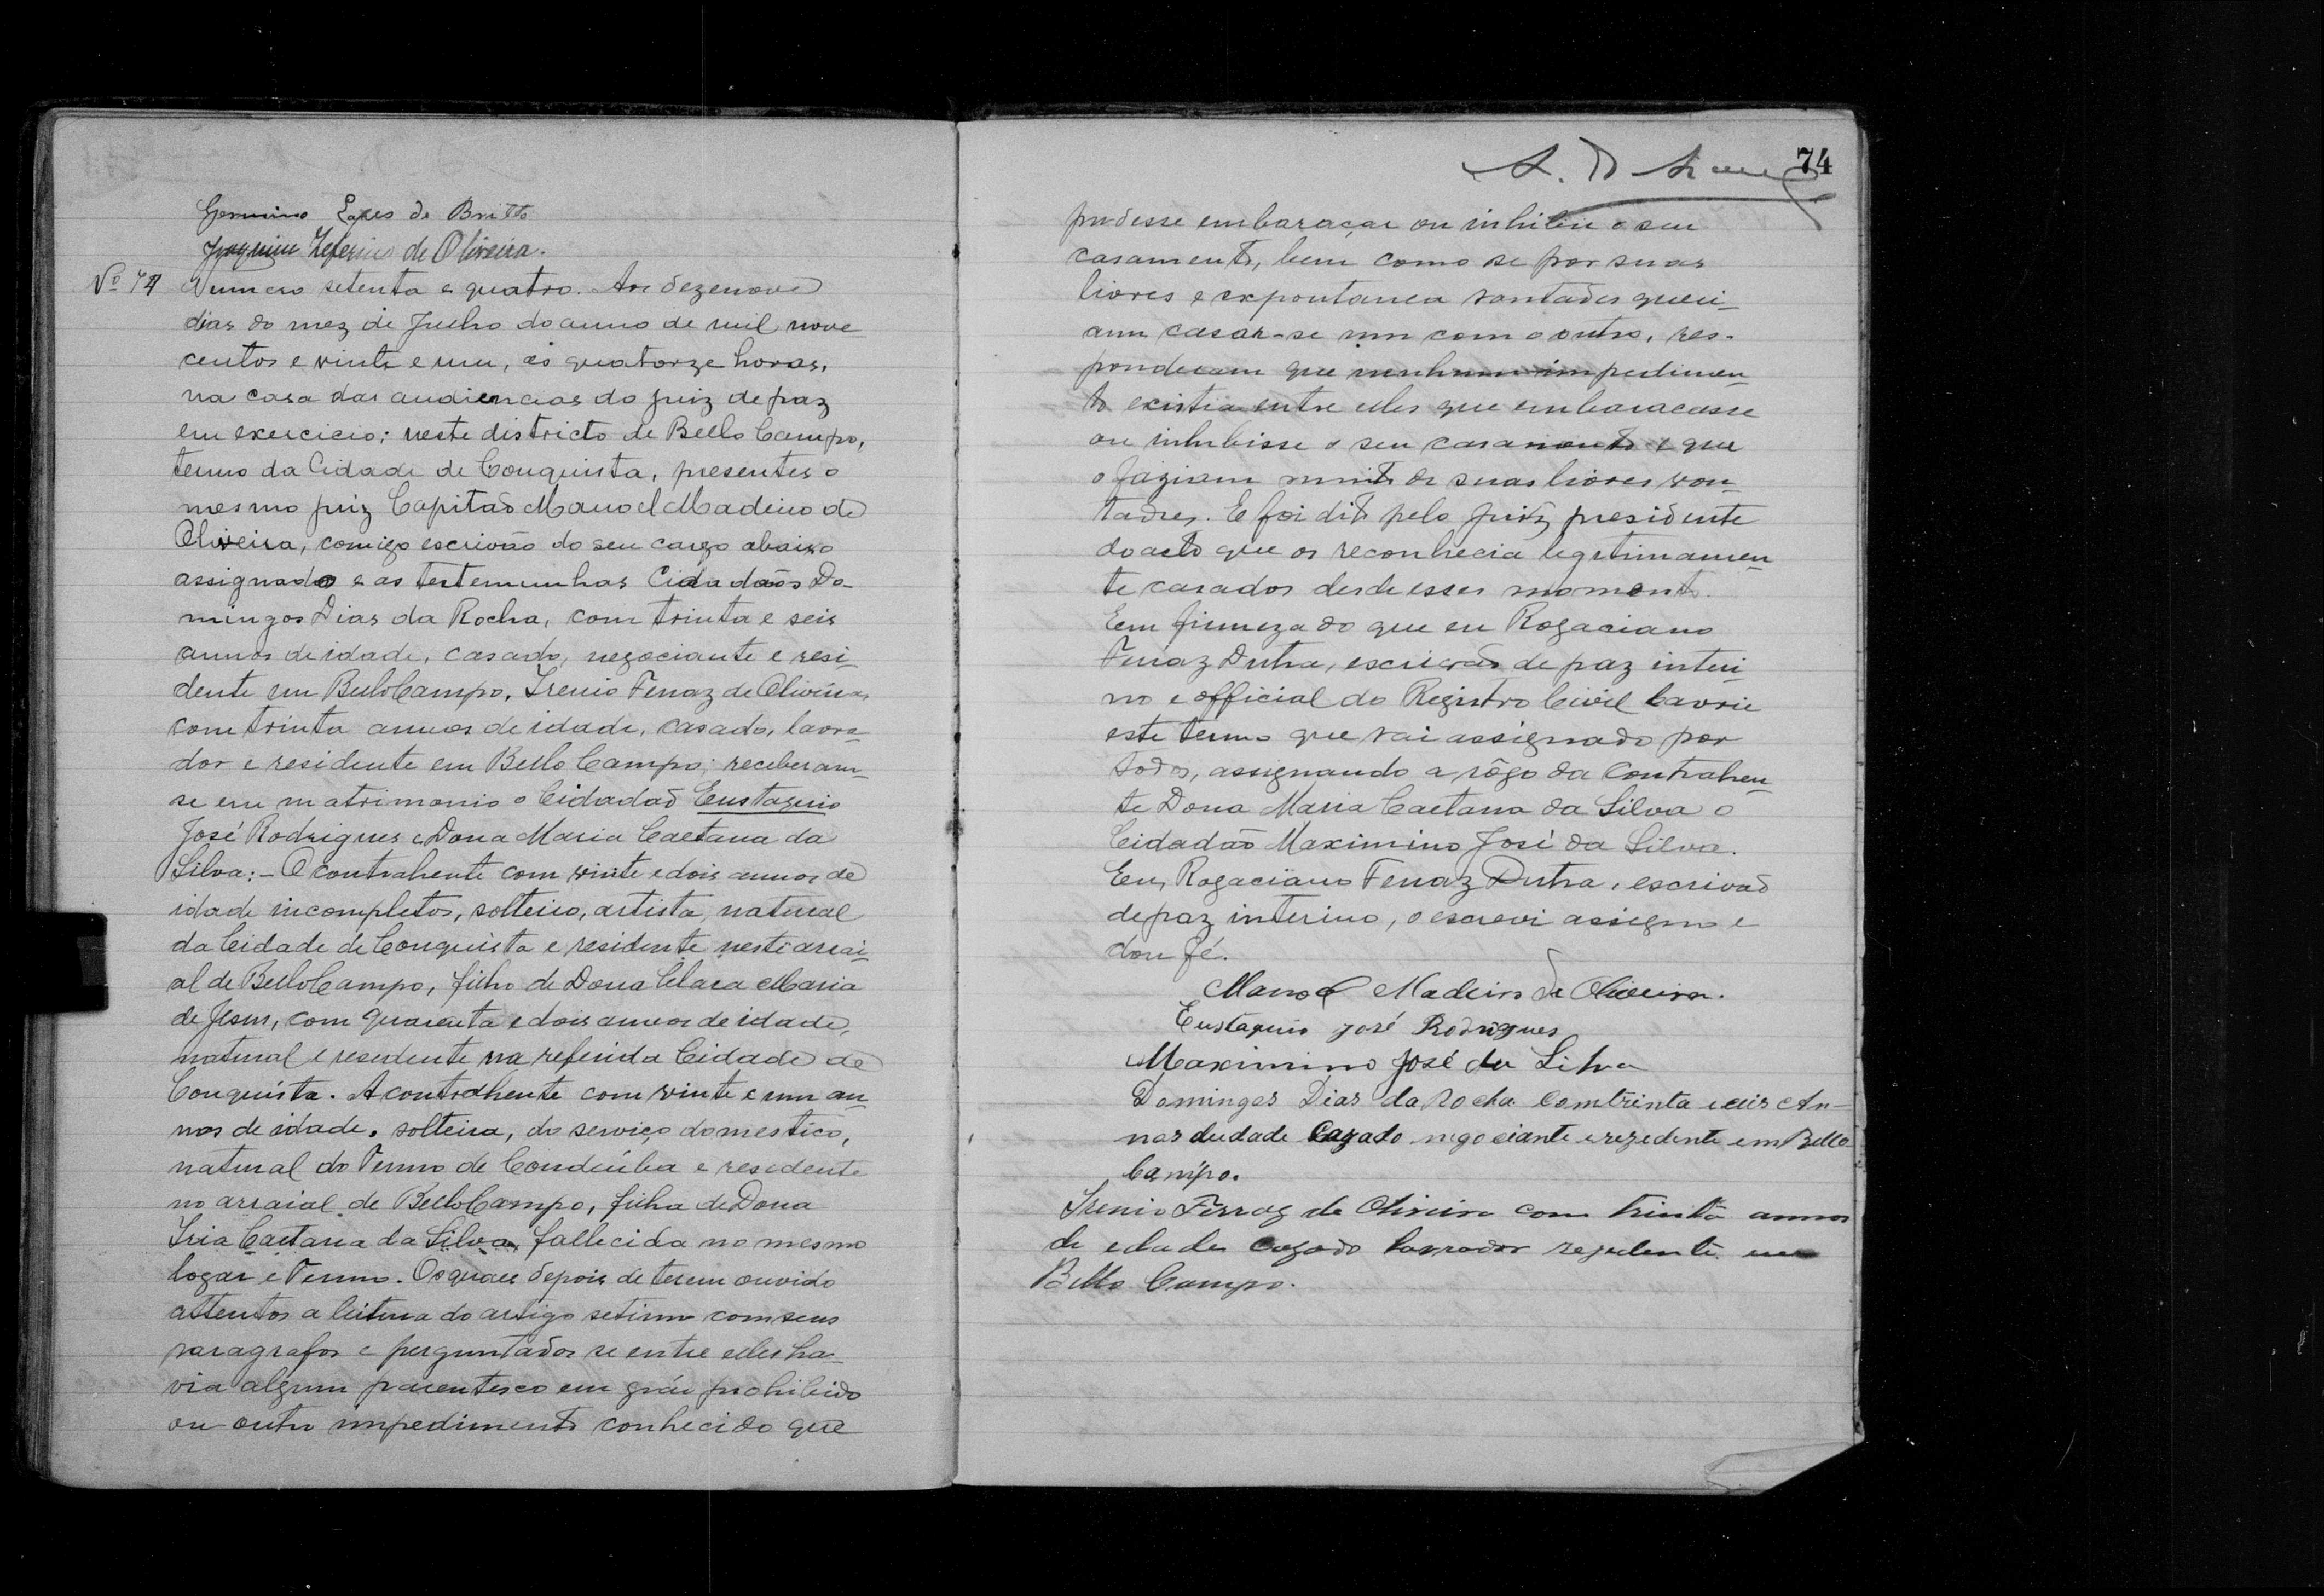 Germino Lopes de Britto
Joaquim Zeferino de Oliveira.
Nº 74 Numero setenta e quatro. Aos dezenove
dias do mez de Julho do anno de mil nove
centos e vinte e um, ás quatorze horas,
na casa das audiencias do juiz de paz
em exercicio; neste districto de Bello Campo,
termo da Cidade de Conquista, presentes o
mesmo juiz Capitaõ Manoel Madeiro de
Oliveira, comigo escrivão do seu cargo abaixo
assignado e as testemunhas Cidadaõs Do-
mingos Dias da Rocha, com trinta e seis
annos de idade, casado, negociante e resi-
dente em Bello Campo, Irenio Ferraz de Oliveira,
com trinta annos de idade, casado, lavra-
dor e residente em Bello Campo; receberam-
se em matrimonio o Cidadaõ Eustaquio
José Rodrigues e Dona Maria Caetana da
Silva:- O contrahente com vinte e dois annos de
idade incompletos, solteiro, artista, natural
da Cidade de Conquista e residente neste arrai-
al de Bello Campo, filho de Dona Clara Maria
de Jesus, com quarenta e dois annos de idade,
natural e residente na referida Cidade de
Conquista. A contrahente com vinte e um an-
nos de idade, solteira, do serviço domestico,
natural do Termo de Condeúba e residente
no arraial de Bello Campo, filha de Dona
Iria Caetana da Silva, fallecida no mesmo
logar e Termo. Os quaes depois de terem ouvido
attentos a leitura do artigo setimo com seus
paragrafos e perguntados se entre elles ha-
via algum parentesco em gráu prohibido
ou outro impedimento conhecido que
74
pudesse embaraçar ou inhibir o seu
casamento, bem como se por suas
livres e expontanea vontades queri-
am casar-se um com o outro, res-
ponderam que nenhum impedimen-
to existia entre elles que embaracasse
ou inhibisse o seu casamento e que
o faziam muito de suas livres von-
tades. E foi dito pelo Juiz presidente
do acto que os reconhecia legitimamen-
te casados desde esses momento.
Em firmeza do que eu Rogaciano
Ferraz Dutra, escrivaõ de paz interi-
no e official do Registro Civil lavrei
este termo que vai assignado por
todos, assignando a rôgo da contrahen-
te Dona Maria Caetana da Silva o
Cidadaõ Maximino José da Silva.
Eu, Rogaciano Ferraz Dutra, escrivaõ
de paz interino, o escrevi assigno e
dou fé.
Manoel Madeiro de Oliveira.
Eustaquio José Rodrigues
Maximino José da Silva
Domingos Dias da Rocha com trinta e seis An-
nos de idade Cazado negociante e rezedente em Bello
Campo.
Irenio Ferraz de Oliveira com trinta annos
de edade cazado lavrador rezedente em
Bello Campo.